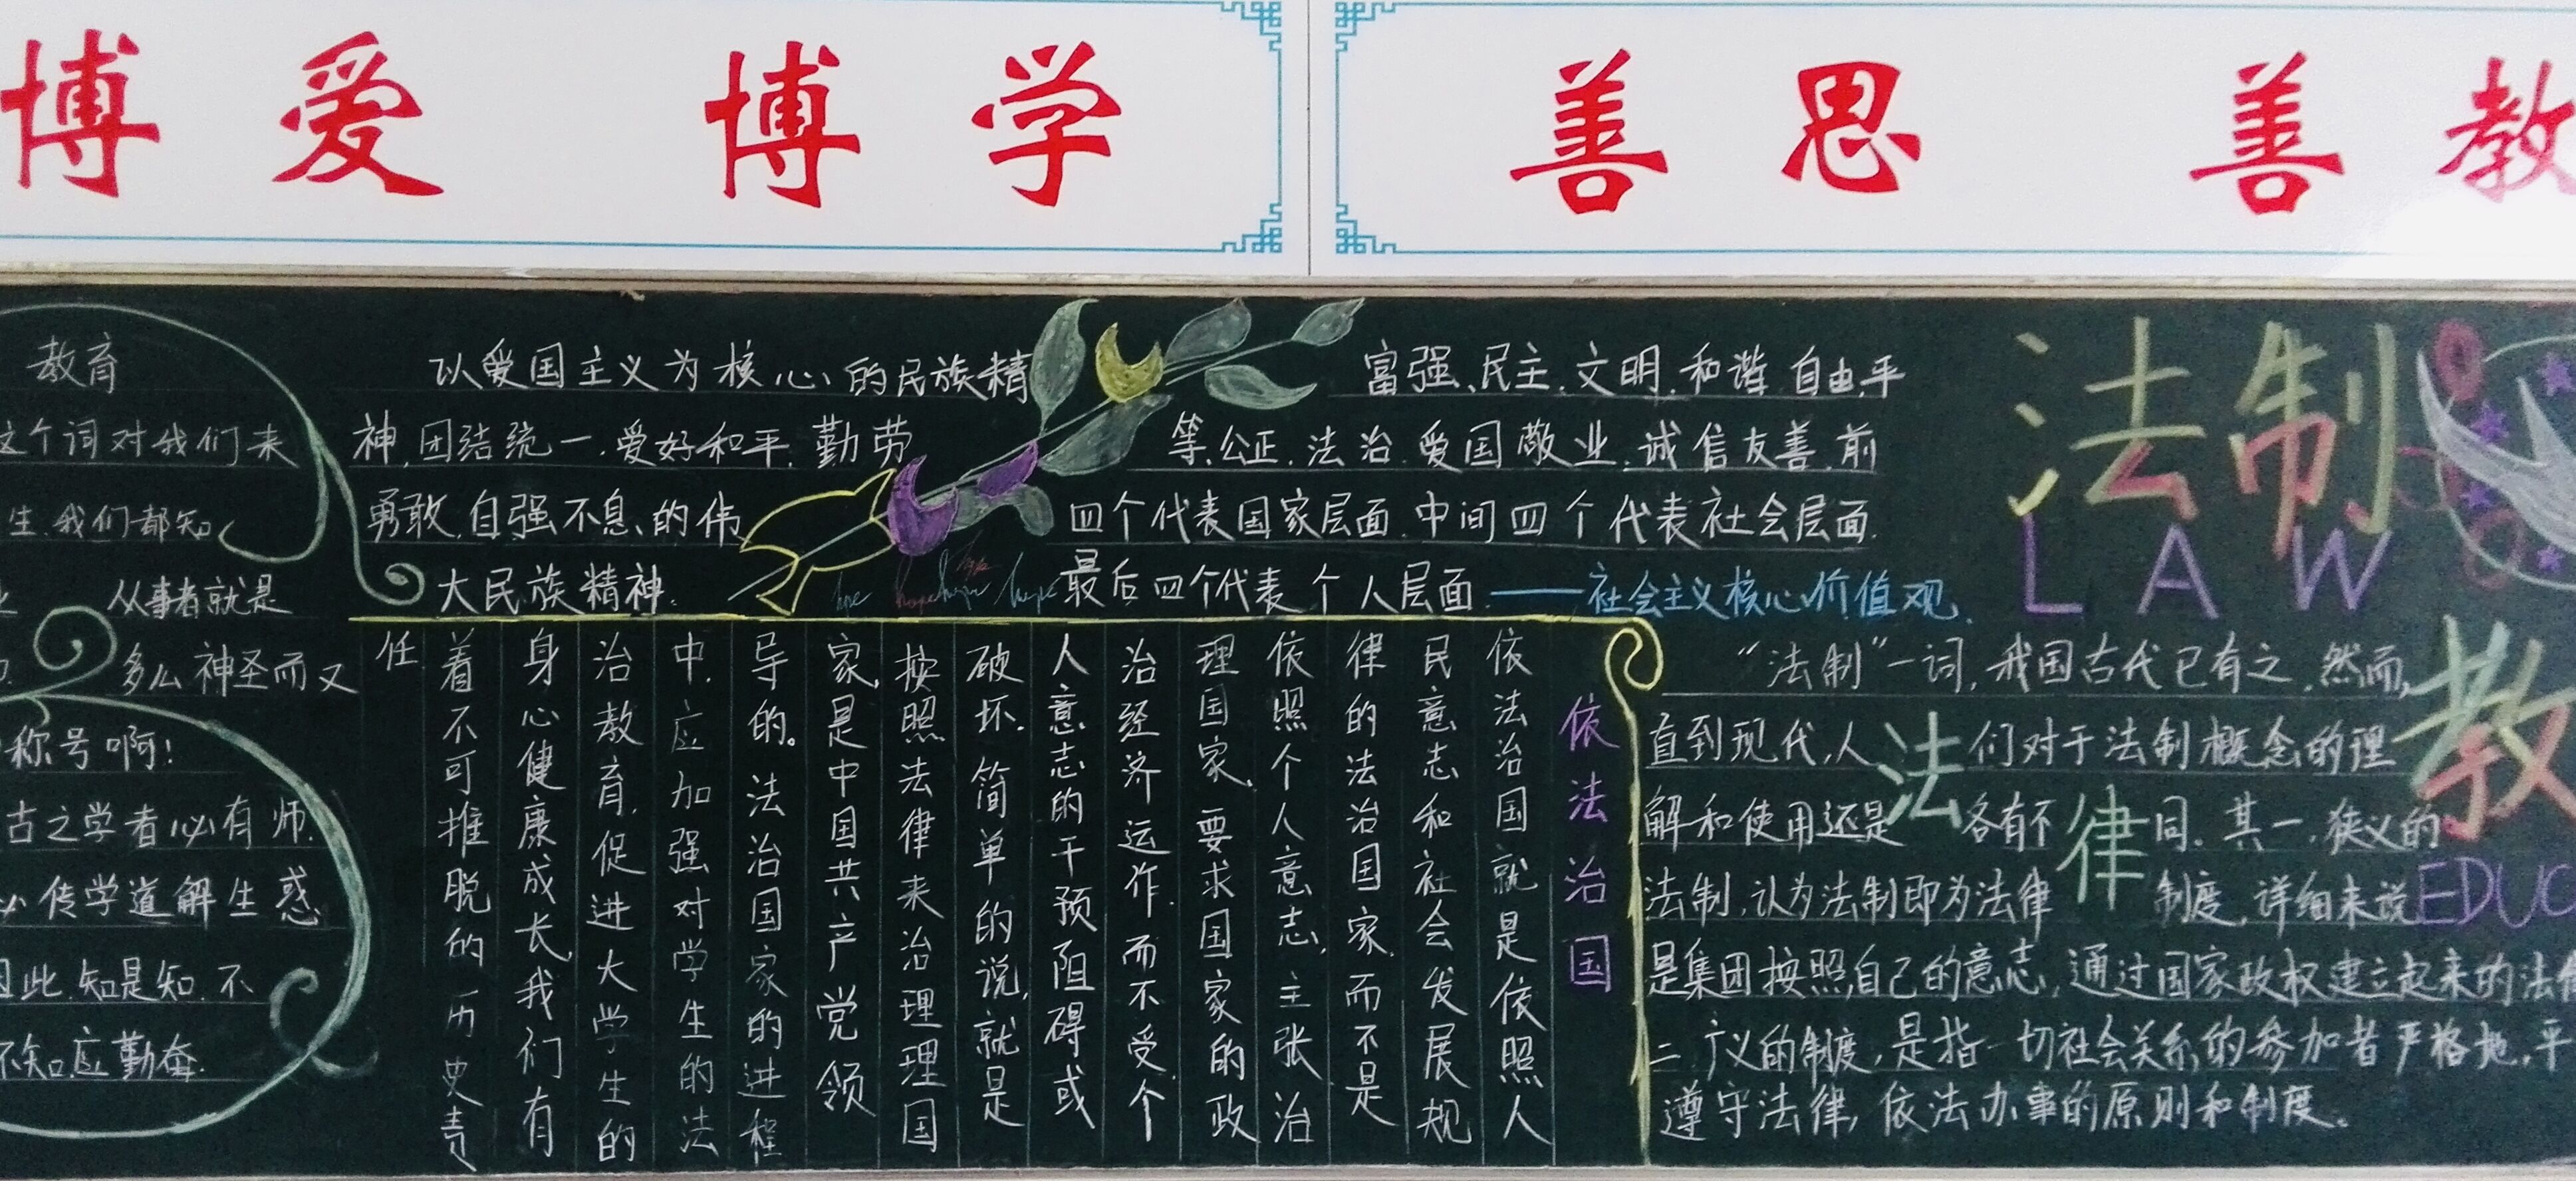 博爱 博学 善思 善教
教育
这个词对我们来
生,我们都知
从事者就是
多么神圣而又
称号啊!
古之学者必有师.
必传学道解生惑
因此.知是知.不
不知.应勤奋.
以爱国主义为核心的民族精
神.团结统一.爱好和平.勤劳
勇敢.自强不息、的伟
大民族精神.
hope hope hope hope
富强、民主.文明.和谐.自由.平
等.公正.法治.爱国敬业.诚信友善.前
四个代表国家层面.中间四个代表社会层面.
最后四个代表个人层面.——社会主义核心价值观.
依法治国
依法治国就是依照人
民意志和社会发展规
律的法治国家.而不是
依照个人意志,主张治
理国家,要求国家的政
治经济运作.而不受个
人意志的干预阻碍或
破坏.简单的说,就是
按照法律来治理理国
家,是中国共产党领
导的。法治国家的进程
中,应加强对学生的法
治教育,促进大学生的
身心健康成长,我们有
着不可推脱的历史责
任
法制
LAW
教
EDUC
法律
“法制”一词,我国古代已有之.然而,
直到现代,人们对于法制概念的理
解和使用还是各有不同.其一.狭义的
法制,认为法制即为法律制度.详细来说
是集团按照自己的意志,通过国家政权建立起来的法
二.广义的制度,是指一切社会关系的参加者严格地,平
遵守法律,依法办事的原则和制度。